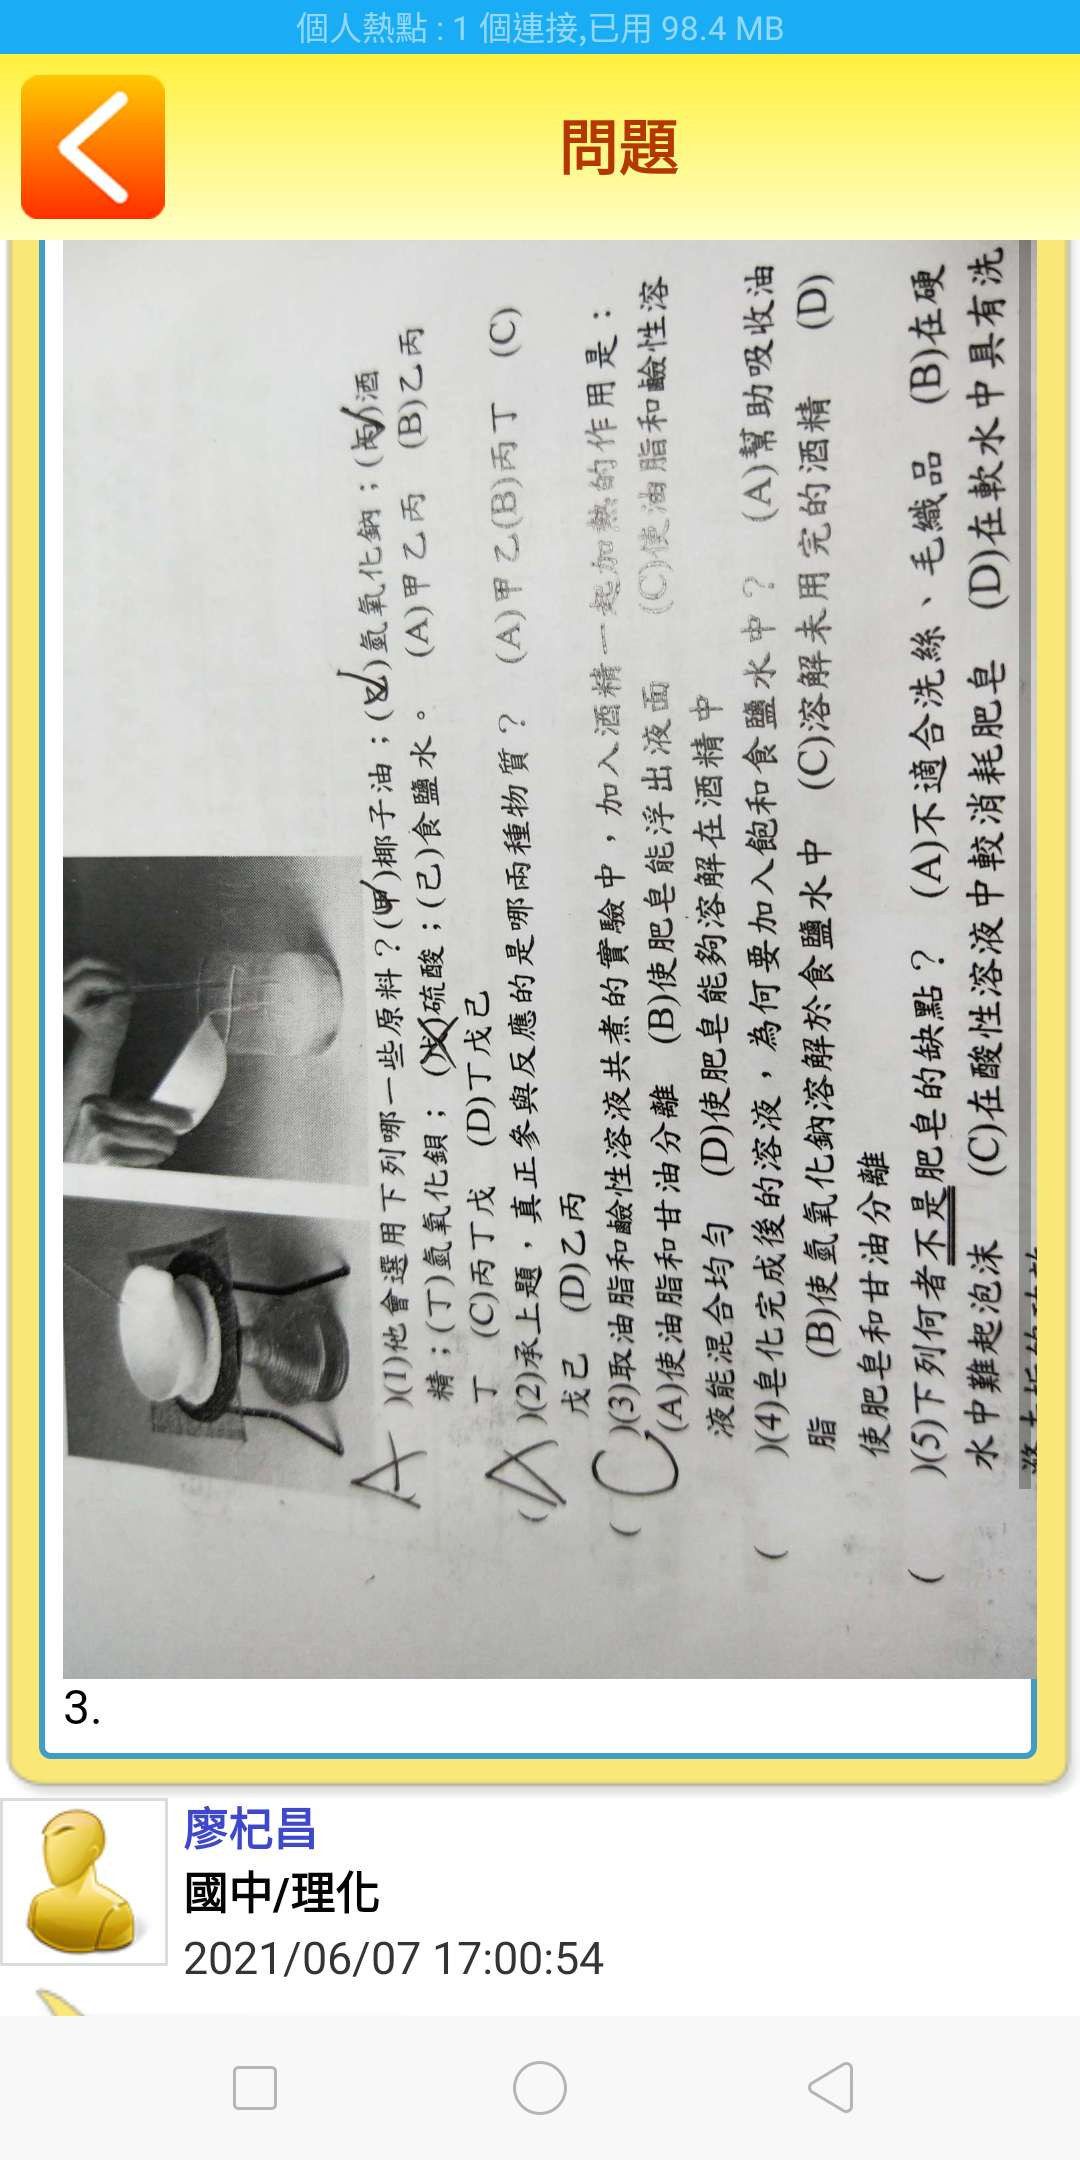 個人熱點 : 1 個連接,已用 98.4 MB
問題
A )(1)他會選用下列哪一些原料？(甲)椰子油；(乙)氫氧化鈉；(丙)酒
精；(丁)氫氧化鋇；(戊)硫酸；(己)食鹽水。 (A)甲乙丙 (B)乙丙
丁 (C)丙丁戊 (D)丁戊己
(A )(2)承上題，真正參與反應的是哪兩種物質？ (A)甲乙(B)丙丁 (C)
戊己 (D)乙丙
( C )(3)取油脂和鹼性溶液共煮的實驗中，加入酒精一起加熱的作用是：
(A)使油脂和甘油分離 (B)使肥皂能浮出液面 (C)使油脂和鹼性溶
液能混合均勻 (D)使肥皂能夠溶解在酒精中
( )(4)皂化完成後的溶液，為何要加入飽和食鹽水中？ (A)幫助吸收油
脂 (B)使氫氧化鈉溶解於食鹽水中 (C)溶解未用完的酒精 (D)
使肥皂和甘油分離
( )(5)下列何者不是肥皂的缺點？ (A)不適合洗絲、毛織品 (B)在硬
水中難起泡沫 (C)在酸性溶液中較消耗肥皂 (D)在軟水中具有洗
3.
廖杞昌
國中/理化
2021/06/07 17:00:54